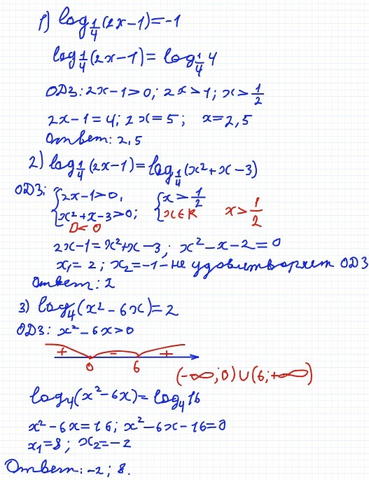 1) log₁/₄(2x-1)=-1
log₁/₄(2x-1)=log₁/₄ 4
ОДЗ: 2x-1>0; 2x>1; x>1/2
2x-1=4; 2x=5; x=2,5
Ответ: 2,5
2) log₁/₄(2x-1)=log₁/₄(x²+x-3)
ОДЗ: {2x-1>0, {x>1/2
{x²+x-3>0; {x∈R x>1/2
D<0
2x-1=x²+x-3; x²-x-2=0
x₁=2; x₂=-1-не удовлетворяет ОДЗ
Ответ: 2
3) log₄(x²-6x)=2
ОДЗ: x²-6x>0
+ - +
0 6
(-∞;0)∪(6;+∞)
log₄(x²-6x)=log₄16
x²-6x=16; x²-6x-16=0
x₁=8; x₂=-2
Ответ: -2; 8.